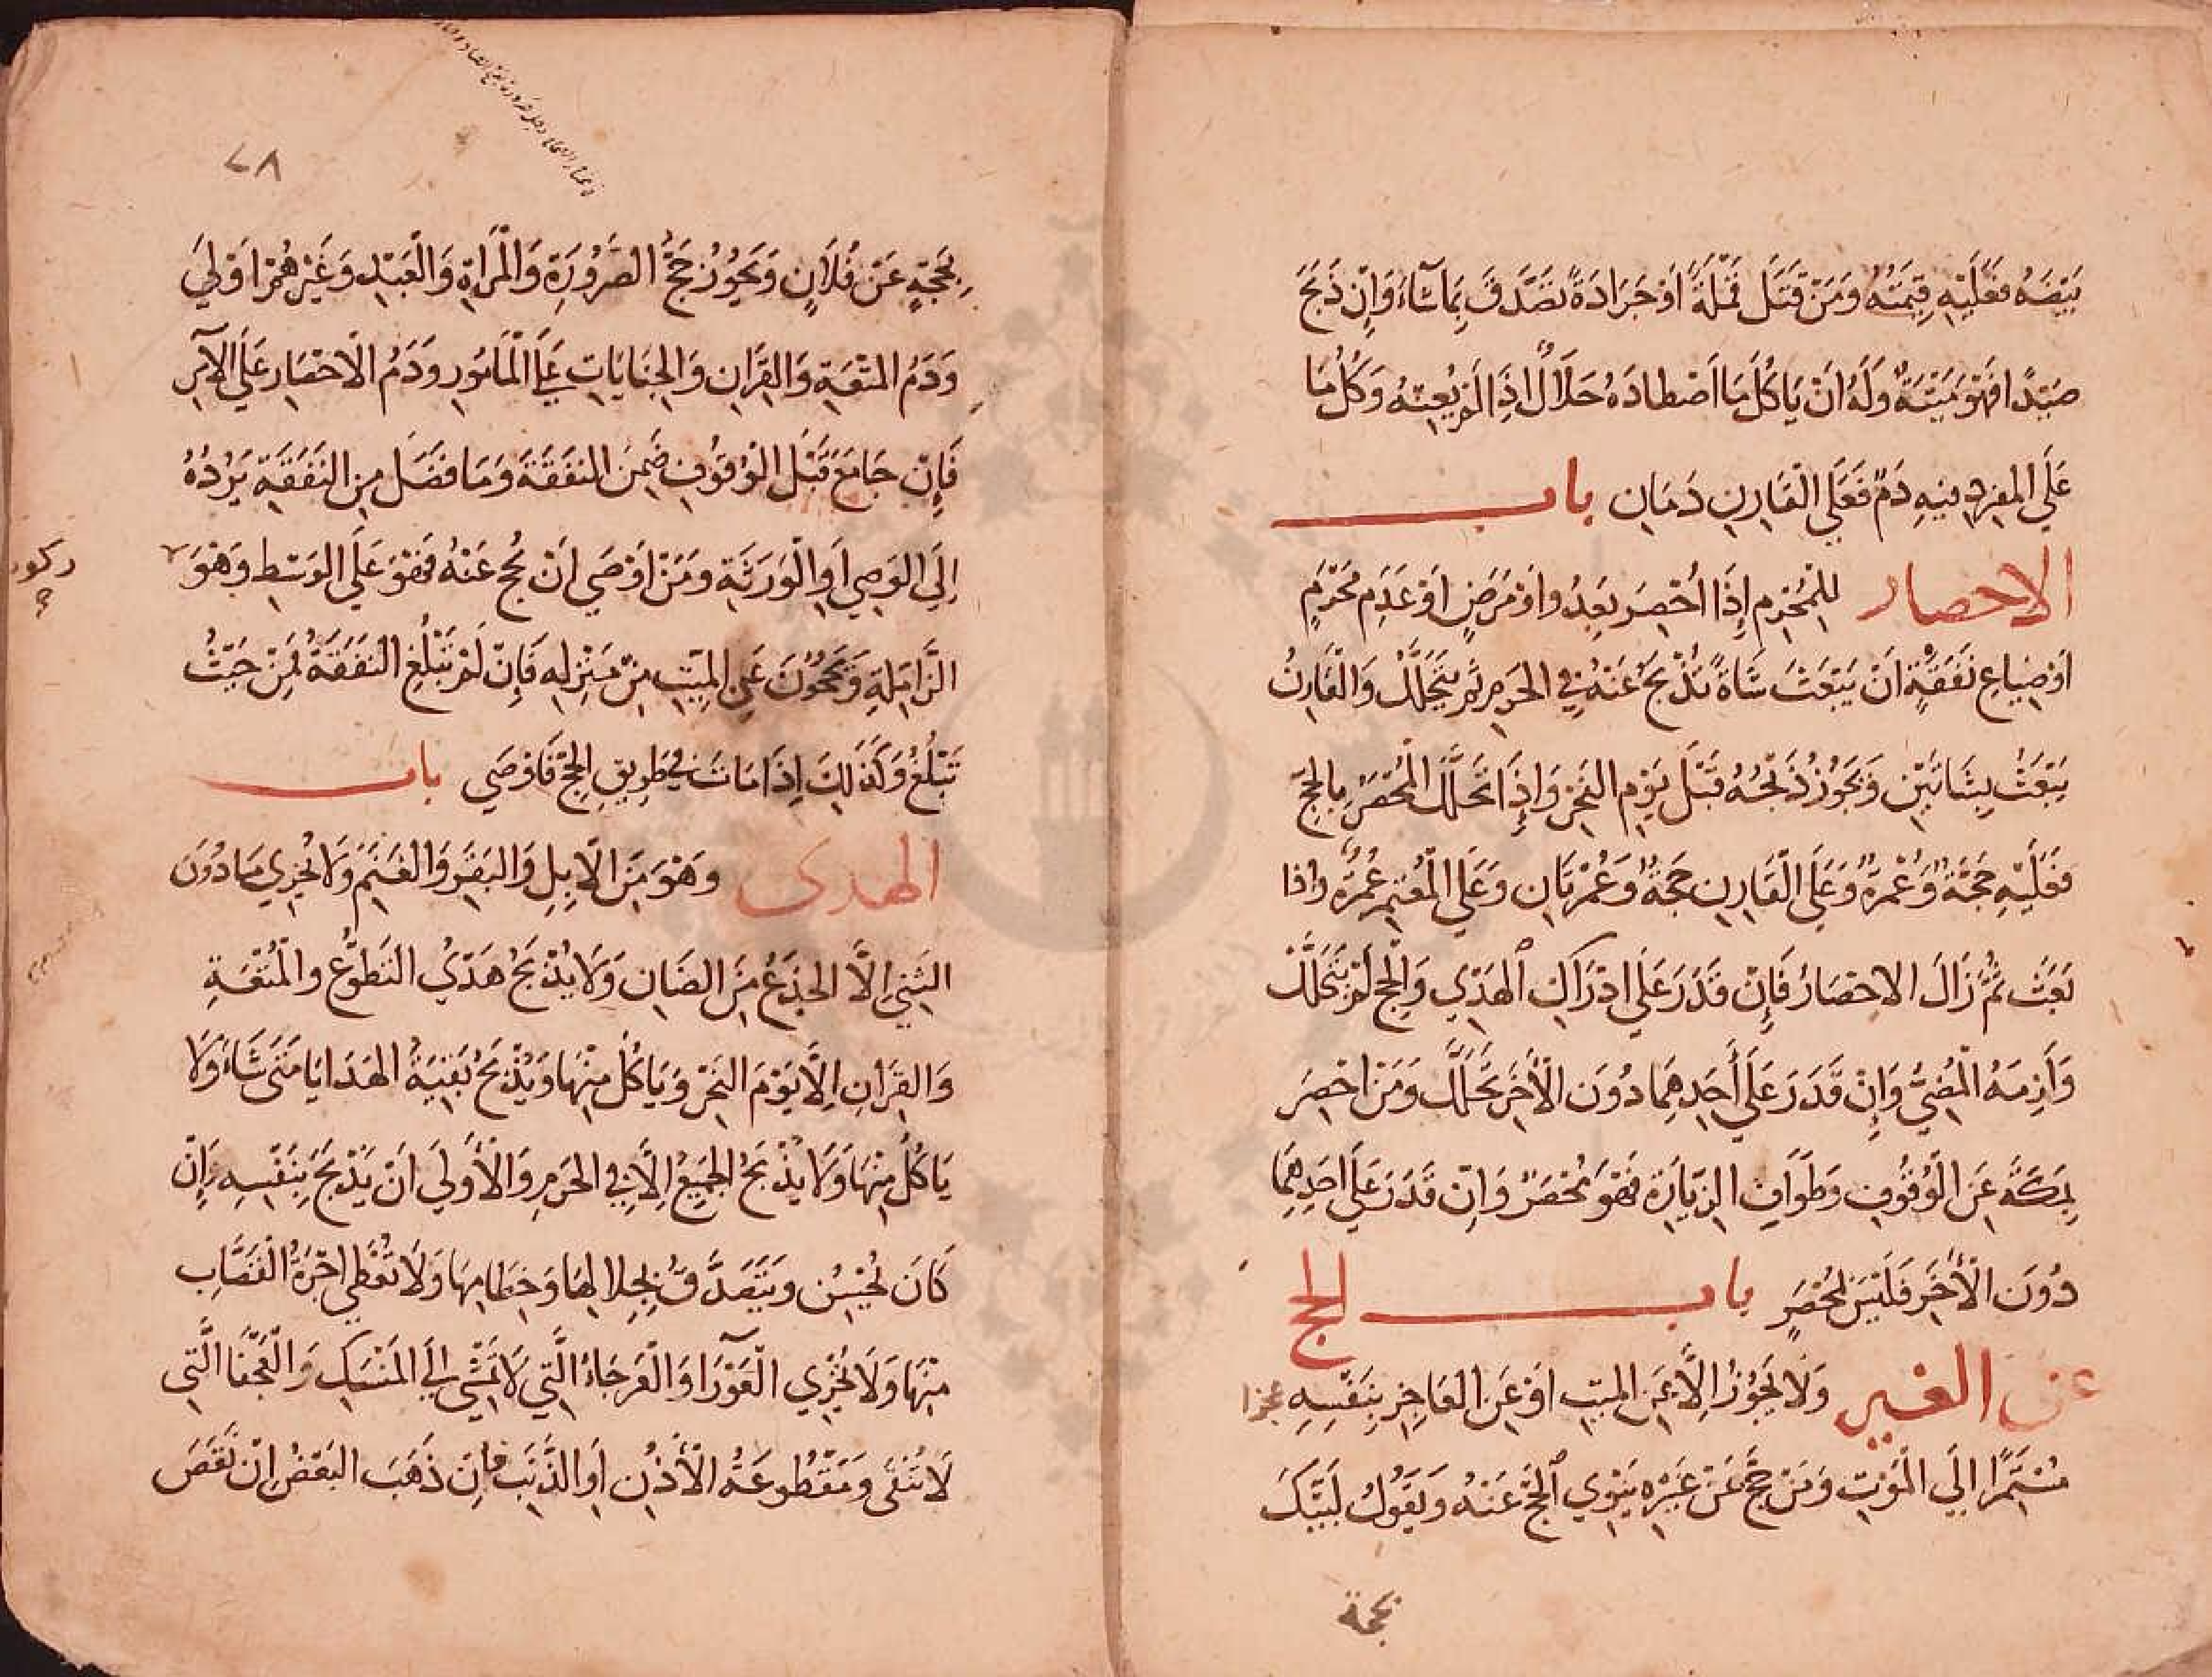 بَيْضَهُ فَعَلَيْهِ قِيمَتُهُ وَمَنْ قَتَلَ قَمْلَةً اَوْ جَرَادَةً تَصَدَّقَ بِمَا شَاءَ وَاِنْ ذَبَحَ
صَيْدًا فَهُوَ مَيْتَةٌ وَلَهُ اَنْ يَاكُلَ مَا اَصْطادَهُ حَلَالٌ اِذَا لَمْ يُعِنْهُ وَكُلُ مَا
عَلَى المفرِدِ فِيهِ دَمٌ فَعَلَى الْقَارِنِ دَمَانِ باب
الاحصار لِلْمُحْرِمِ إِذَا اُحْصِرَ بِعَدُو اَوْ مَرَضٍ اَوْ عَدَمِ مَحْرَمٍ
اَوْ ضِيَاعِ نَفَقَةٍ اَنْ يَبْعَثَ شَاةً تُذْبَحُ عَنْهُ فِي الحَرَمِ ثُمَ يَتَحَلَّلُ وَالْقَارِنُ
يَبْعَثُ بِشَاتَيْنِ وَيَجُوزُ ذَبْحُهُ قَبْلَ يَوْمِ النَحْرِ وَاِذَا تَحَلَّلَ الْمُحْصَرُ بِالحَجِّ
فَعَلَيْهِ حَجَّةٌ وَعُمْرَةٌ وَعَلَى الْقَارِنِ حَجَّةٌ وَعُمْرَتَانِ وَعَلَى الْمُعْتَمِرِ عُمْرَةٌ واذا
بَعَثَ ثُمَّ زَالَ الاِحْصَارُ فَإِنْ قَدَرَ عَلَى اِدْرَاكِ الْهَدْيِ وَالْحَجِ لَمْ يَتَحَلَّلْ
وَلَزِمَهُ الْمُضِيُّ وَاِنْ قَدَرَ عَلَى أَحَدِهِمَا دُونَ الْأَخَرِ تَحَلَّلَ وَمَنْ اُحْصِرَ
بِمَكَّةَ عِنِ الْوُقُوفِ وَطَوَافِ الزِيَارَةِ فَهْوَ مُحْصَرٌ وَاِنْ قَدَرَ عَلَى اَحَدِهِمَا
دُونَ الْأَخَرِ فَلَيْسَ بِمُحْصَرٍ باب الحج
عن الغير وَلَا يَجُوزُ اِلَّا عَنِ الميِتِ اَوْ عَنِ العَاجِزِ بِنَفْسِهِ عجزا
مُسْتَمِرًّا اِلَى الْمَوْتِ وَمَنْ حَجَّ عَنْ غَيْرِهِ يَنْوِي الْحَجَّ عَنْهُ وَيَقُولُ لَبَّيْكَ
بحجة
٧٨
بِحَجَّةٍ عَنْ فُلَانٍ وَيَجُوزُ حَجُّ الصَّرُورَةِ وَالْمَرْاَةِ وَالْعَبْدِ وَغَيْرُهُمْ اَوْلَى
وَدَمُ المتْعَةِ وَالقِرَانِ وَالجِنَايَاتِ عَلَى الْمَامُورِ وَدَمُ الْاحْصَارِ عَلَى الْآمِرِ
فَإِنْ جَامَعَ قَبْلَ الْوُقُوفِ ضَمِنَ النفَقَةَ وَمَا فَضَلَ مِنِ النَفَقَةِ يَرُدُهُ
اِلَى الوَصِي اَوِ الْوَرَثَةِ وَمَنْ اَوْصَى اَنْ يُحَجَ عَنْهُ فَهُوَ عَلَى الوَسَطِ وَهْوَ
الزَّامِلَةِ وَيَحُجُّونَ عَنِ الميِّتِ مِنْ مَنْزِلِهِ فَاِنْ لَمْ تَبْلُغِ النَفَقَةُ فَمِنْ حَيْثُ
تَبْلُغُ وَكَذَلِكَ اِذَا مَاتَ فِي طَرِيقِ الْحَجِّ فَاَوْصَى باب
الهدى وَهْوَ مِنَ الْاِبِلِ وَالبَقَرِ وَالْغَنَمِ وَلَا يُجْزِي مَا دُونَ
الثَنِي اِلَّا الجَذَعُ مِنَ الضَانِ وَلَا يُذْبَحُ هَدْيُ التَطَوُّعِ والْمُتْعَةِ
وَالقِرَانِ اِلَّا يَوْمَ النَحْرِ وَيَاكُلُ مِنْهَا وَيُذْبَحُ بَقِيَةُ الهَدَايَا مَتَى شَاءَ وَلَا
يَاكُلُ مِنْهَا وَلَا يُذْبَحُ الجَمِيعُ اِلَّا فِي الحَرَمِ وَالْأَوْلَى اَنْ يَذْبَحَ بِنَفْسِهِ اِنْ
كَانَ يُحْسِنُ وَيَتَصَدَّقُ بِجِلَالِهَا وَخِطَامِهَا وَلَا تُعْطَى اجْرَةُ الْقَصَّابِ
مِنْهَا وَلَا يُجْزِي الْعَوْرَآ وَالْعَرجَاءُ الَّتِي لَا تَمْشِي اِلَى الْمَنْسِكِ وَالْعَجْفَا الَّتِي
لَا تُنْقَى وَمَقْطُوعَةُ الْأُذُنِ اَوِ الذَّنَبِ فاِنْ ذَهَبَ البَعْضُ اِنْ نَقَصَ